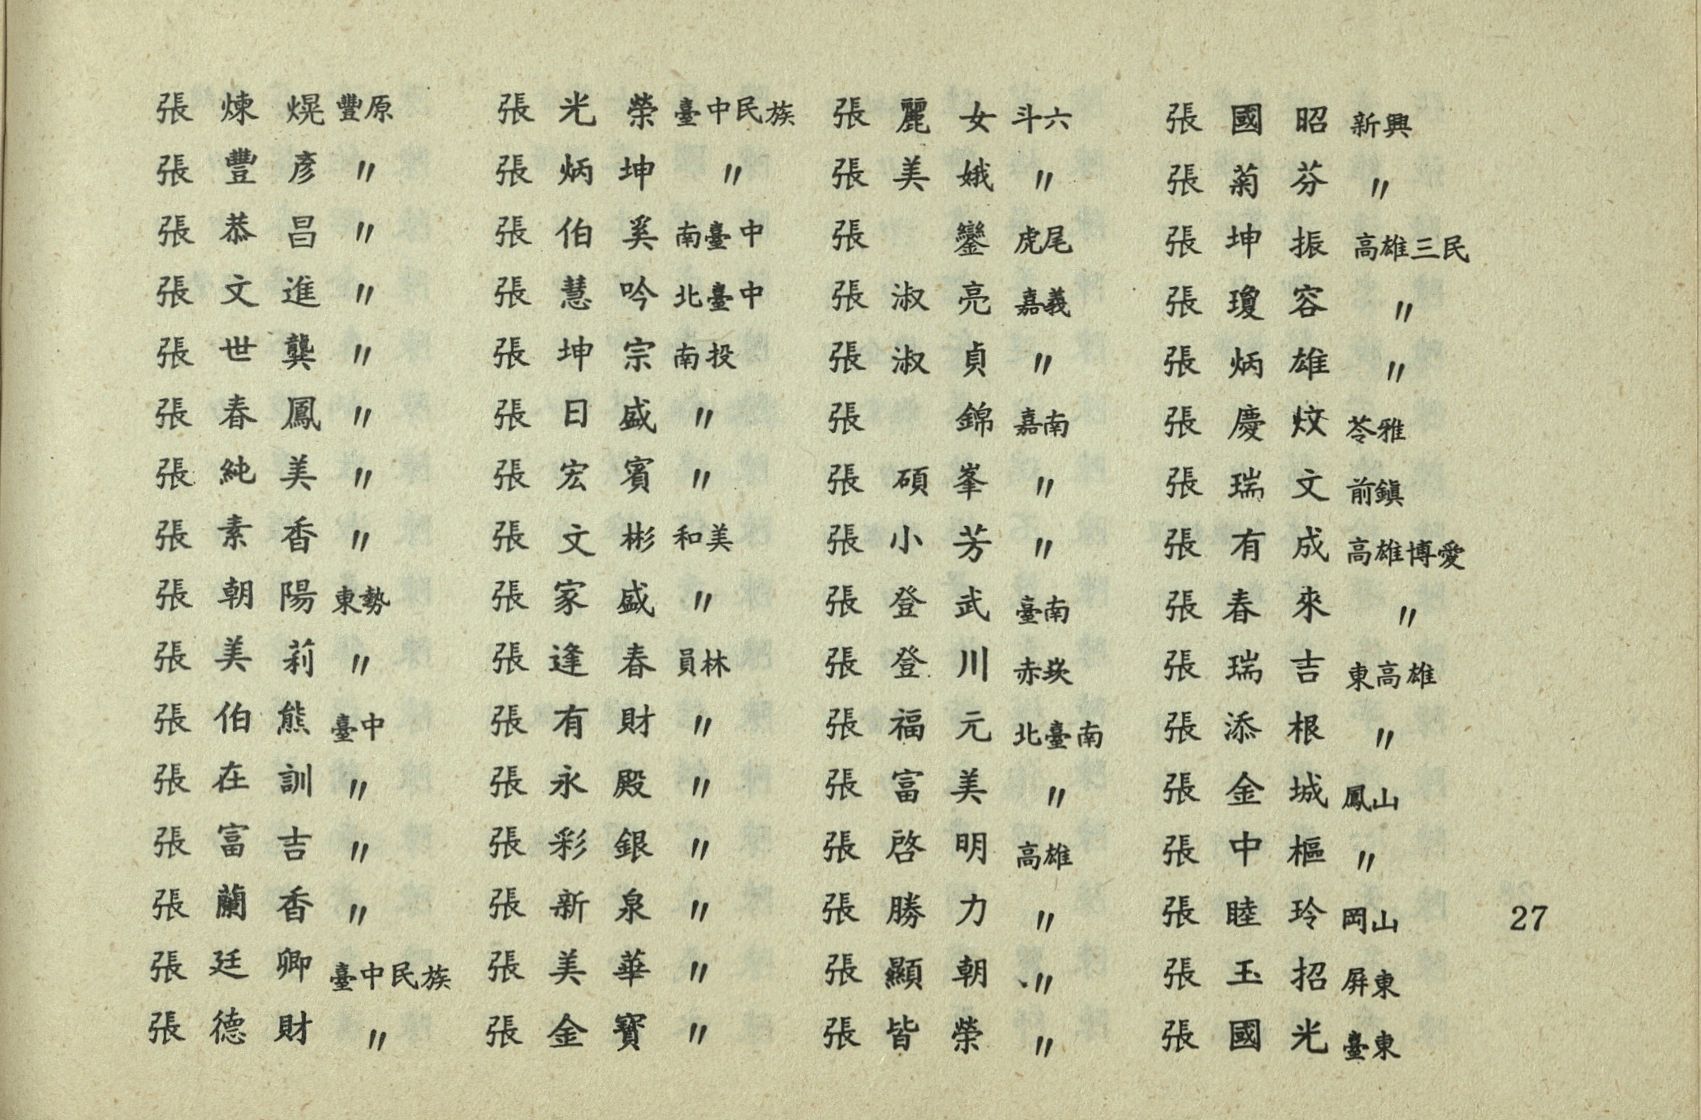 張煉熀豐原
張豐彥〃
張恭昌〃
張文進〃
張世龔〃
張春鳳〃
張純美〃
張素香〃
張朝陽東勢
張美莉〃
張伯熊臺中
張在訓〃
張富吉〃
張蘭香〃
張廷卿臺中民族
張德財〃
張光榮臺中民族
張炳坤〃
張伯奚南臺中
張慧吟北臺中
張坤宗南投
張日盛〃
張宏賓〃
張文彬和美
張家盛〃
張逢春員林
張有財〃
張永殿〃
張彩銀〃
張新泉〃
張美華〃
張金寶〃
張麗女斗六
張美娥〃
張鑾虎尾
張淑亮嘉義
張淑貞〃
張錦嘉南
張碩峯〃
張小芳〃
張登武臺南
張登川赤崁
張福元北臺南
張富美〃
張啓明高雄
張勝力〃
張顯朝〃
張皆榮〃
張國昭新興
張菊芬〃
張坤振高雄三民
張瓊容〃
張炳雄〃
張慶炆苓雅
張瑞文前鎮
張有成高雄博愛
張春來〃
張瑞吉東高雄
張添根〃
張金城鳳山
張中樞〃
張睦玲岡山
張玉招屏東
張國光臺東
27